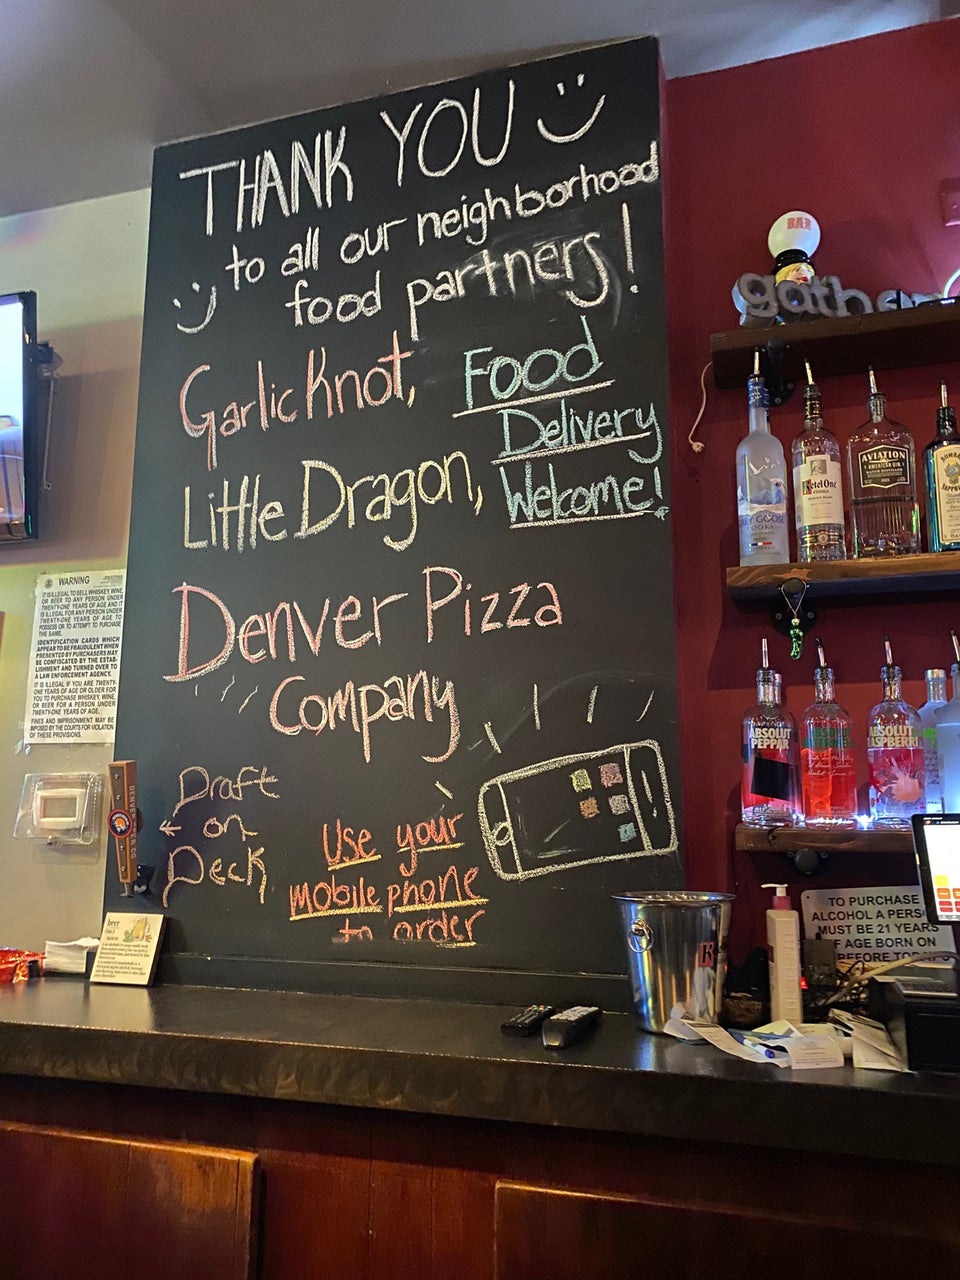 THANK YOU
to all our neighborhood
food partners!
Garlic Knot,
Food
Delivery
Welcome!
Little Dragon,
Denver Pizza
Company
Draft
on
Deck
Use your
mobile phone
to order
BAR
gather
GREY GOOSE
VODKA
Ketel One
VODKA
AVIATION
AMERICAN GIN
BOMBAY
SAPPHIRE
ABSOLUT
PEPPAR
ABSOLUT
ABSOLUT
RASPBERRI
WARNING
IT IS ILLEGAL TO SELL WHISKEY, WINE,
OR BEER TO ANY PERSON UNDER
TWENTY-ONE YEARS OF AGE AND IT
IS ILLEGAL FOR ANY PERSON UNDER
TWENTY-ONE YEARS OF AGE TO
POSSESS OR TO ATTEMPT TO PURCHASE
THE SAME.
IDENTIFICATION CARDS WHICH
APPEAR TO BE FRAUDULENT WHEN
PRESENTED BY PURCHASERS MAY
BE CONFISCATED BY THE ESTAB-
LISHMENT AND TURNED OVER TO
A LAW ENFORCEMENT AGENCY.
IT IS ILLEGAL IF YOU ARE TWENTY-
ONE YEARS OF AGE OR OLDER FOR
YOU TO PURCHASE WHISKEY, WINE,
OR BEER FOR A PERSON UNDER
TWENTY-ONE YEARS OF AGE.
FINES AND IMPRISONMENT MAY BE
IMPOSED BY THE COURTS FOR VIOLATION
OF THESE PROVISIONS.
DENVER BEER CO
beer
TO PURCHASE
ALCOHOL A PERSO
MUST BE 21 YEARS
OF AGE BORN ON
BEFORE TODAY'S